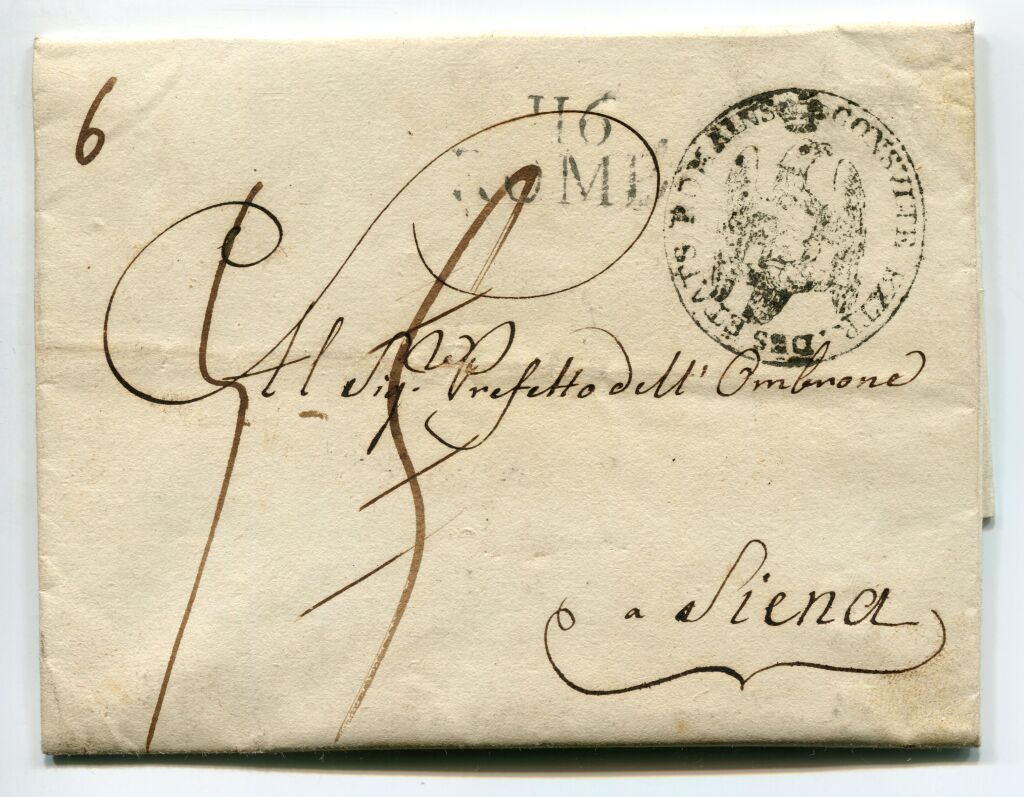 6
116
ROME
CONSULTE EXTR. DES ETATS ROMAINS
Al Sig.r Prefetto dell' Ombrone
a Siena